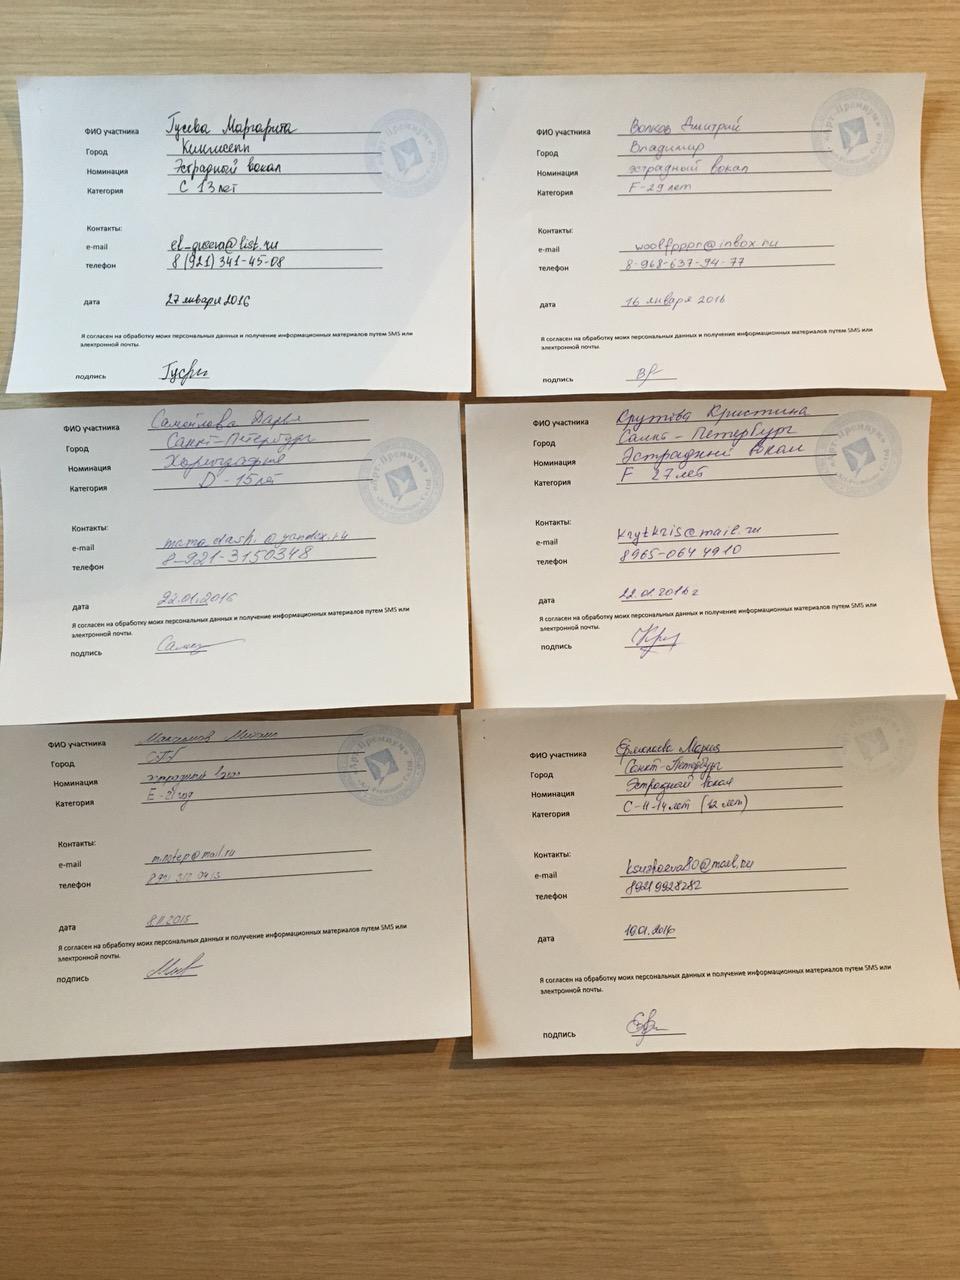 ФИО участника Гусева Маргарита
Город Кингисепп
Номинация Эстрадной вокал
Категория С 13 лет
Контакты:
e-mail el_guseva@list.ru
телефон 8 (921) 341-45-08
дата 27 января 2016
Я согласен на обработку моих персональных данных и получение информационных материалов путем SMS или
электронной почты.
подпись
«Арт-Премиум»
ФИО участника Волков Дмитрий
Город Владимир
Номинация эстрадный вокал
Категория F-29 лет
Контакты:
e-mail woolfpppn@inbox.ru
телефон 8-968-637-94-77
дата 16 января 2016
Я согласен на обработку моих персональных данных и получение информационных материалов путем SMS или
электронной почты.
подпись
«Арт-Премиум»
ФИО участника Самойлова Дарья
Город Санкт-Петербург
Номинация Хореография
Категория D - 15 лет
Контакты:
e-mail
телефон 8-921-3150348
дата 22.01.2016
Я согласен на обработку моих персональных данных и получение информационных материалов путем SMS или
электронной почты.
подпись
«Арт-Премиум»
ФИО участника Крутова Кристина
Город Санкт-Петербург
Номинация Эстрадный вокал
Категория F 27 лет
Контакты:
e-mail krytkris@mail.ru
телефон 8965-064 4910
дата 22.01.2016 г
Я согласен на обработку моих персональных данных и получение информационных материалов путем SMS или
электронной почты.
подпись
«Арт-Премиум»
ФИО участника
Город СПб
Номинация эстрадный вокал
Категория Е - 21 год
Контакты:
e-mail
телефон
дата 8.11.2015
Я согласен на обработку моих персональных данных и получение информационных материалов путем SMS или
электронной почты.
подпись
«Арт-Премиум»
ФИО участника Мария
Город Санкт-Петербург
Номинация Эстрадной вокал
Категория С-11-14 лет (12 лет)
Контакты:
e-mail
телефон 89219928282
дата 19.01.2016
Я согласен на обработку моих персональных данных и получение информационных материалов путем SMS или
электронной почты.
подпись